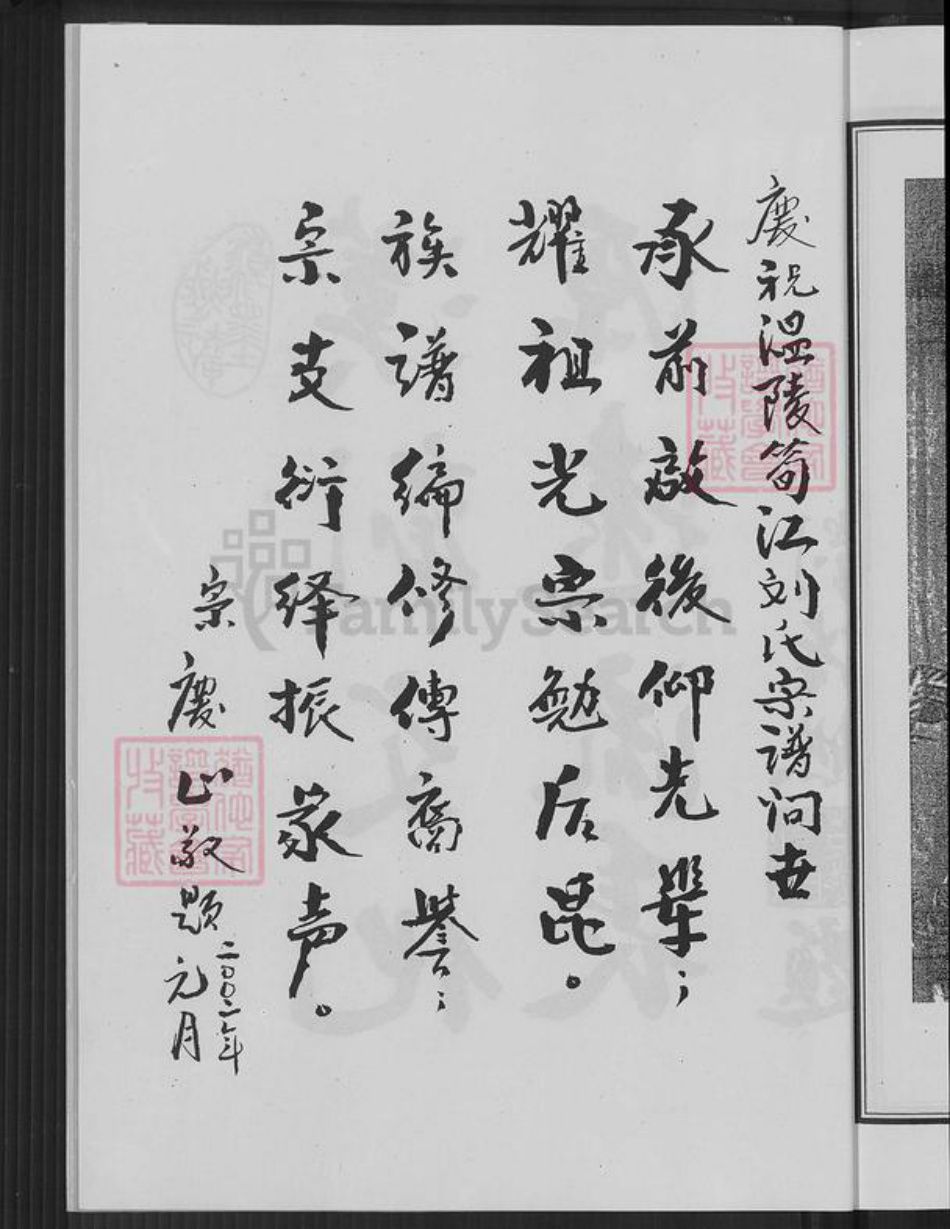 慶祝温陵筍江刘氏宗譜问世
承前啟後仰先輩；
耀祖光宗勉后昆。
族譜编修傳裔譽；
宗支衍绎振家声。
宗慶 敬題
二00二年
元月
FamilySearch